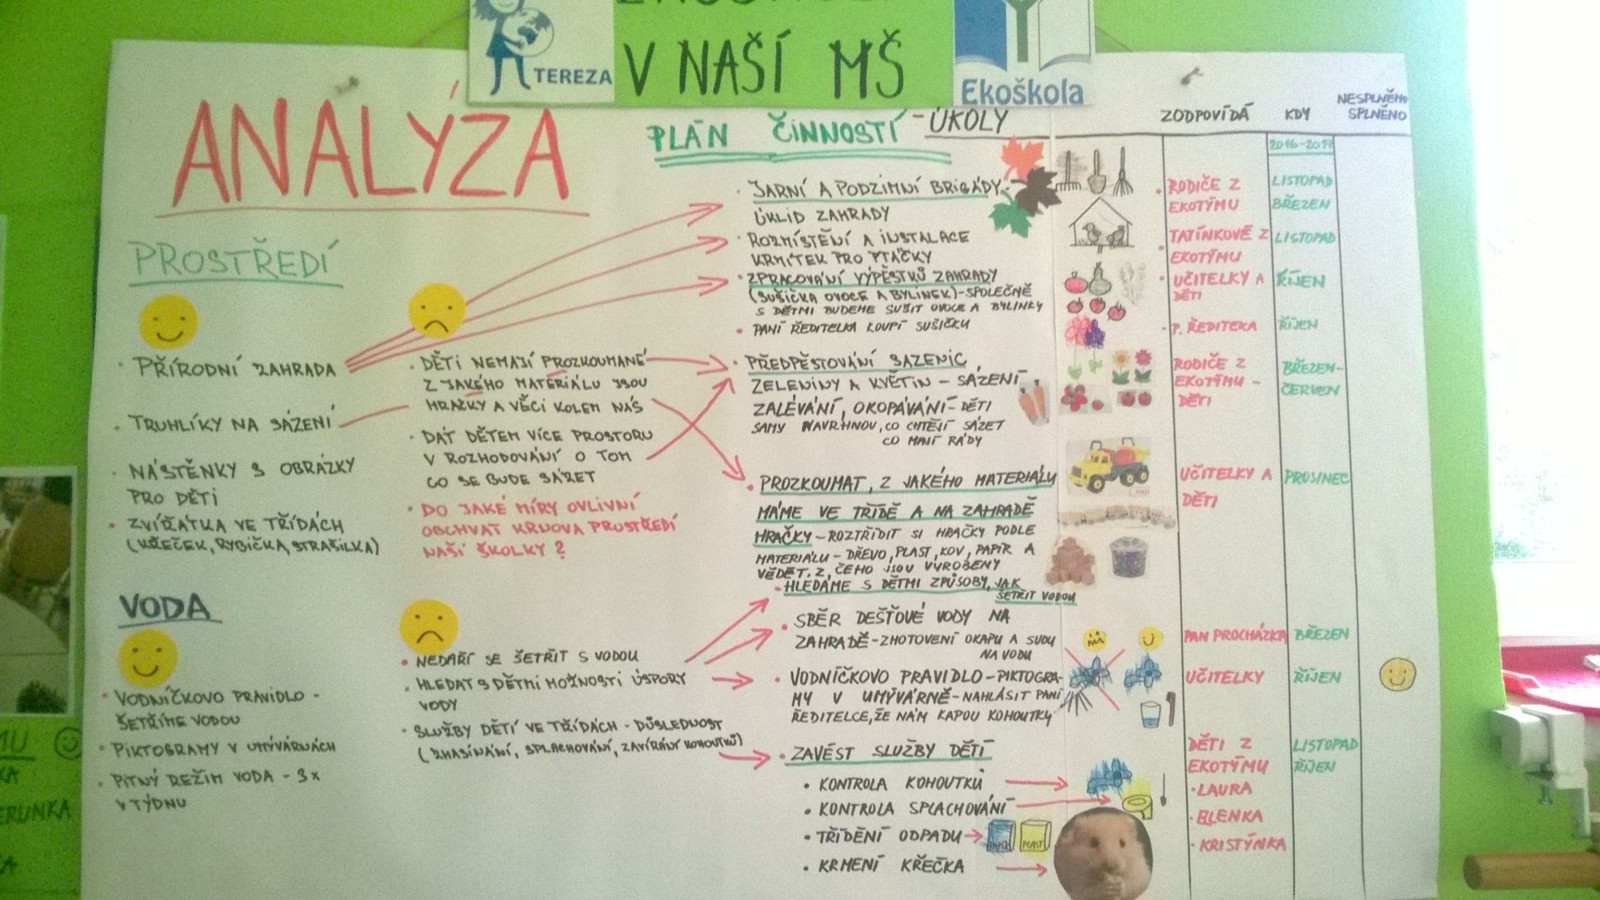 TEREZA
V NAŠÍ MŠ
Ekoškola
ANALÝZA
PROSTŘEDÍ
• PŘÍRODNÍ ZAHRADA
• TRUHLÍKY NA SÁZENÍ
• NÁSTĚNKY S OBRÁZKY
PRO DĚTI
• ZVÍŘATKA VE TŘÍDÁCH
(KŘEČEK, RYBIČKA, STRAŠILKA)
• DĚTI NEMAJÍ PROZKOUMANÉ
Z JAKÉHO MATERIÁLU JSOU
HRAČKY A VĚCI KOLEM NÁS
• DÁT DĚTEM VÍCE PROSTORU
V ROZHODOVÁNÍ O TOM
CO SE BUDE SÁZET
• DO JAKÉ MÍRY OVLIVNÍ
OBCHVAT KRNOVA PROSTŘEDÍ
NAŠÍ ŠKOLKY?
VODA
VODNÍČKOVO PRAVIDLO -
ŠETŘÍME VODOU
• PIKTOGRAMY V UMÝVÁRNÁCH
• PITNÝ REŽIM VODA - 3x
V TÝDNU
• NEDAŘÍ SE ŠETŘIT S VODOU
• HLEDAT S DĚTMI MOŽNOSTI ÚSPORY
VODY
• SLUŽBY DĚTÍ VE TŘÍDÁCH - DŮSLEDNOST
(ZHASÍNÁNÍ, SPLACHOVÁNÍ, ZAVÍRÁNÍ KOHOUTKŮ)
PLÁN ČINNOSTÍ - ÚKOLY
• JARNÍ A PODZIMNÍ BRIGÁDY
ÚKLID ZAHRADY
• ROZMÍSTĚNÍ A INSTALACE
KRMÍTEK PRO PTÁČKY
• ZPRACOVÁNÍ VÝPĚSTKŮ ZAHRADY
(SUŠIČKA OVOCE A BYLINEK) - SPOLEČNĚ
S DĚTMI BUDEME SUŠIT OVOCE A BYLINKY
• PANÍ ŘEDITELKA KOUPÍ SUŠIČKU
• PŘEDPĚSTOVÁNÍ SAZENIC
ZELENINY A KVĚTIN - SÁZENÍ
ZALÉVÁNÍ, OKOPÁVÁNÍ - DĚTI
SAMY NAVRHNOU, CO CHTĚJÍ SÁZET
CO MAJÍ RÁDY
• PROZKOUMAT, Z JAKÉHO MATERIÁLU
MÁME VE TŘÍDĚ A NA ZAHRADĚ
HRAČKY - ROZTŘÍDIT SI HRAČKY PODLE
MATERIÁLU - DŘEVO, PLAST, KOV, PAPÍR A
VĚDĚT, Z ČEHO JSOU VYROBENY
• HLEDÁME S DĚTMI ZPŮSOBY, JAK
ŠETŘIT VODOU
• SBĚR DEŠŤOVÉ VODY NA
ZAHRADĚ - ZHOTOVENÍ OKAPU A SUDU
NA VODU
• VODNÍČKOVO PRAVIDLO - PIKTOGRA-
MY V UMÝVÁRNĚ - NAHLÁSIT PANÍ
ŘEDITELCE, ŽE NÁM KAPOU KOHOUTKY
• ZAVÉST SLUŽBY DĚTÍ
• KONTROLA KOHOUTKŮ
• KONTROLA SPLACHOVÁNÍ
• TŘÍDĚNÍ ODPADU
• KRMENÍ KŘEČKA
PAPÍR
PLAST
ZODPOVÍDÁ
• RODIČE Z
EKOTÝMU
TATÍNKOVÉ Z
• EKOTÝMU
• UČITELKY A
DĚTI
• P. ŘEDITELKA
RODIČE Z
EKOTÝMU -
DĚTI
UČITELKY A
DĚTI
PAN PROCHÁZKA
UČITELKY
DĚTI Z
EKOTÝMU
• LAURA
• ELENKA
• KRISTÝNKA
KDY
2016-2017
LISTOPAD
BŘEZEN
LISTOPAD
ŘÍJEN
ŘÍJEN
BŘEZEN-
ČERVEN
PROSINEC
BŘEZEN
ŘÍJEN
LISTOPAD
ŘÍJEN
NESPLNĚNO
SPLNĚNO